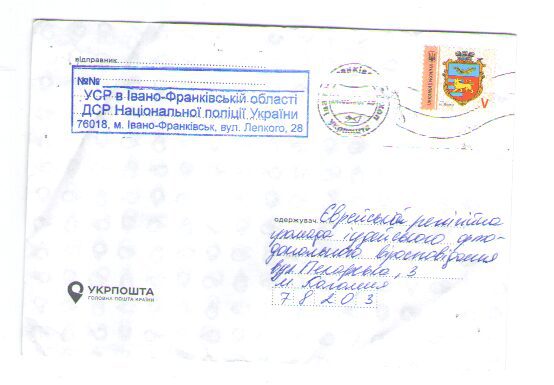 відправник
№№
УСР в Івано-Франківській області
ДСР Національної поліції України
76018, м. Івано-Франківськ, вул. Лепкого, 28
V
одержувач Єврейській релігійна
громада іудейського орто-
доксального віросповідання
вул.
, 3
м. Коломия
78203
УКРПОШТА
ГОЛОВНА ПОШТА КРАЇНИ